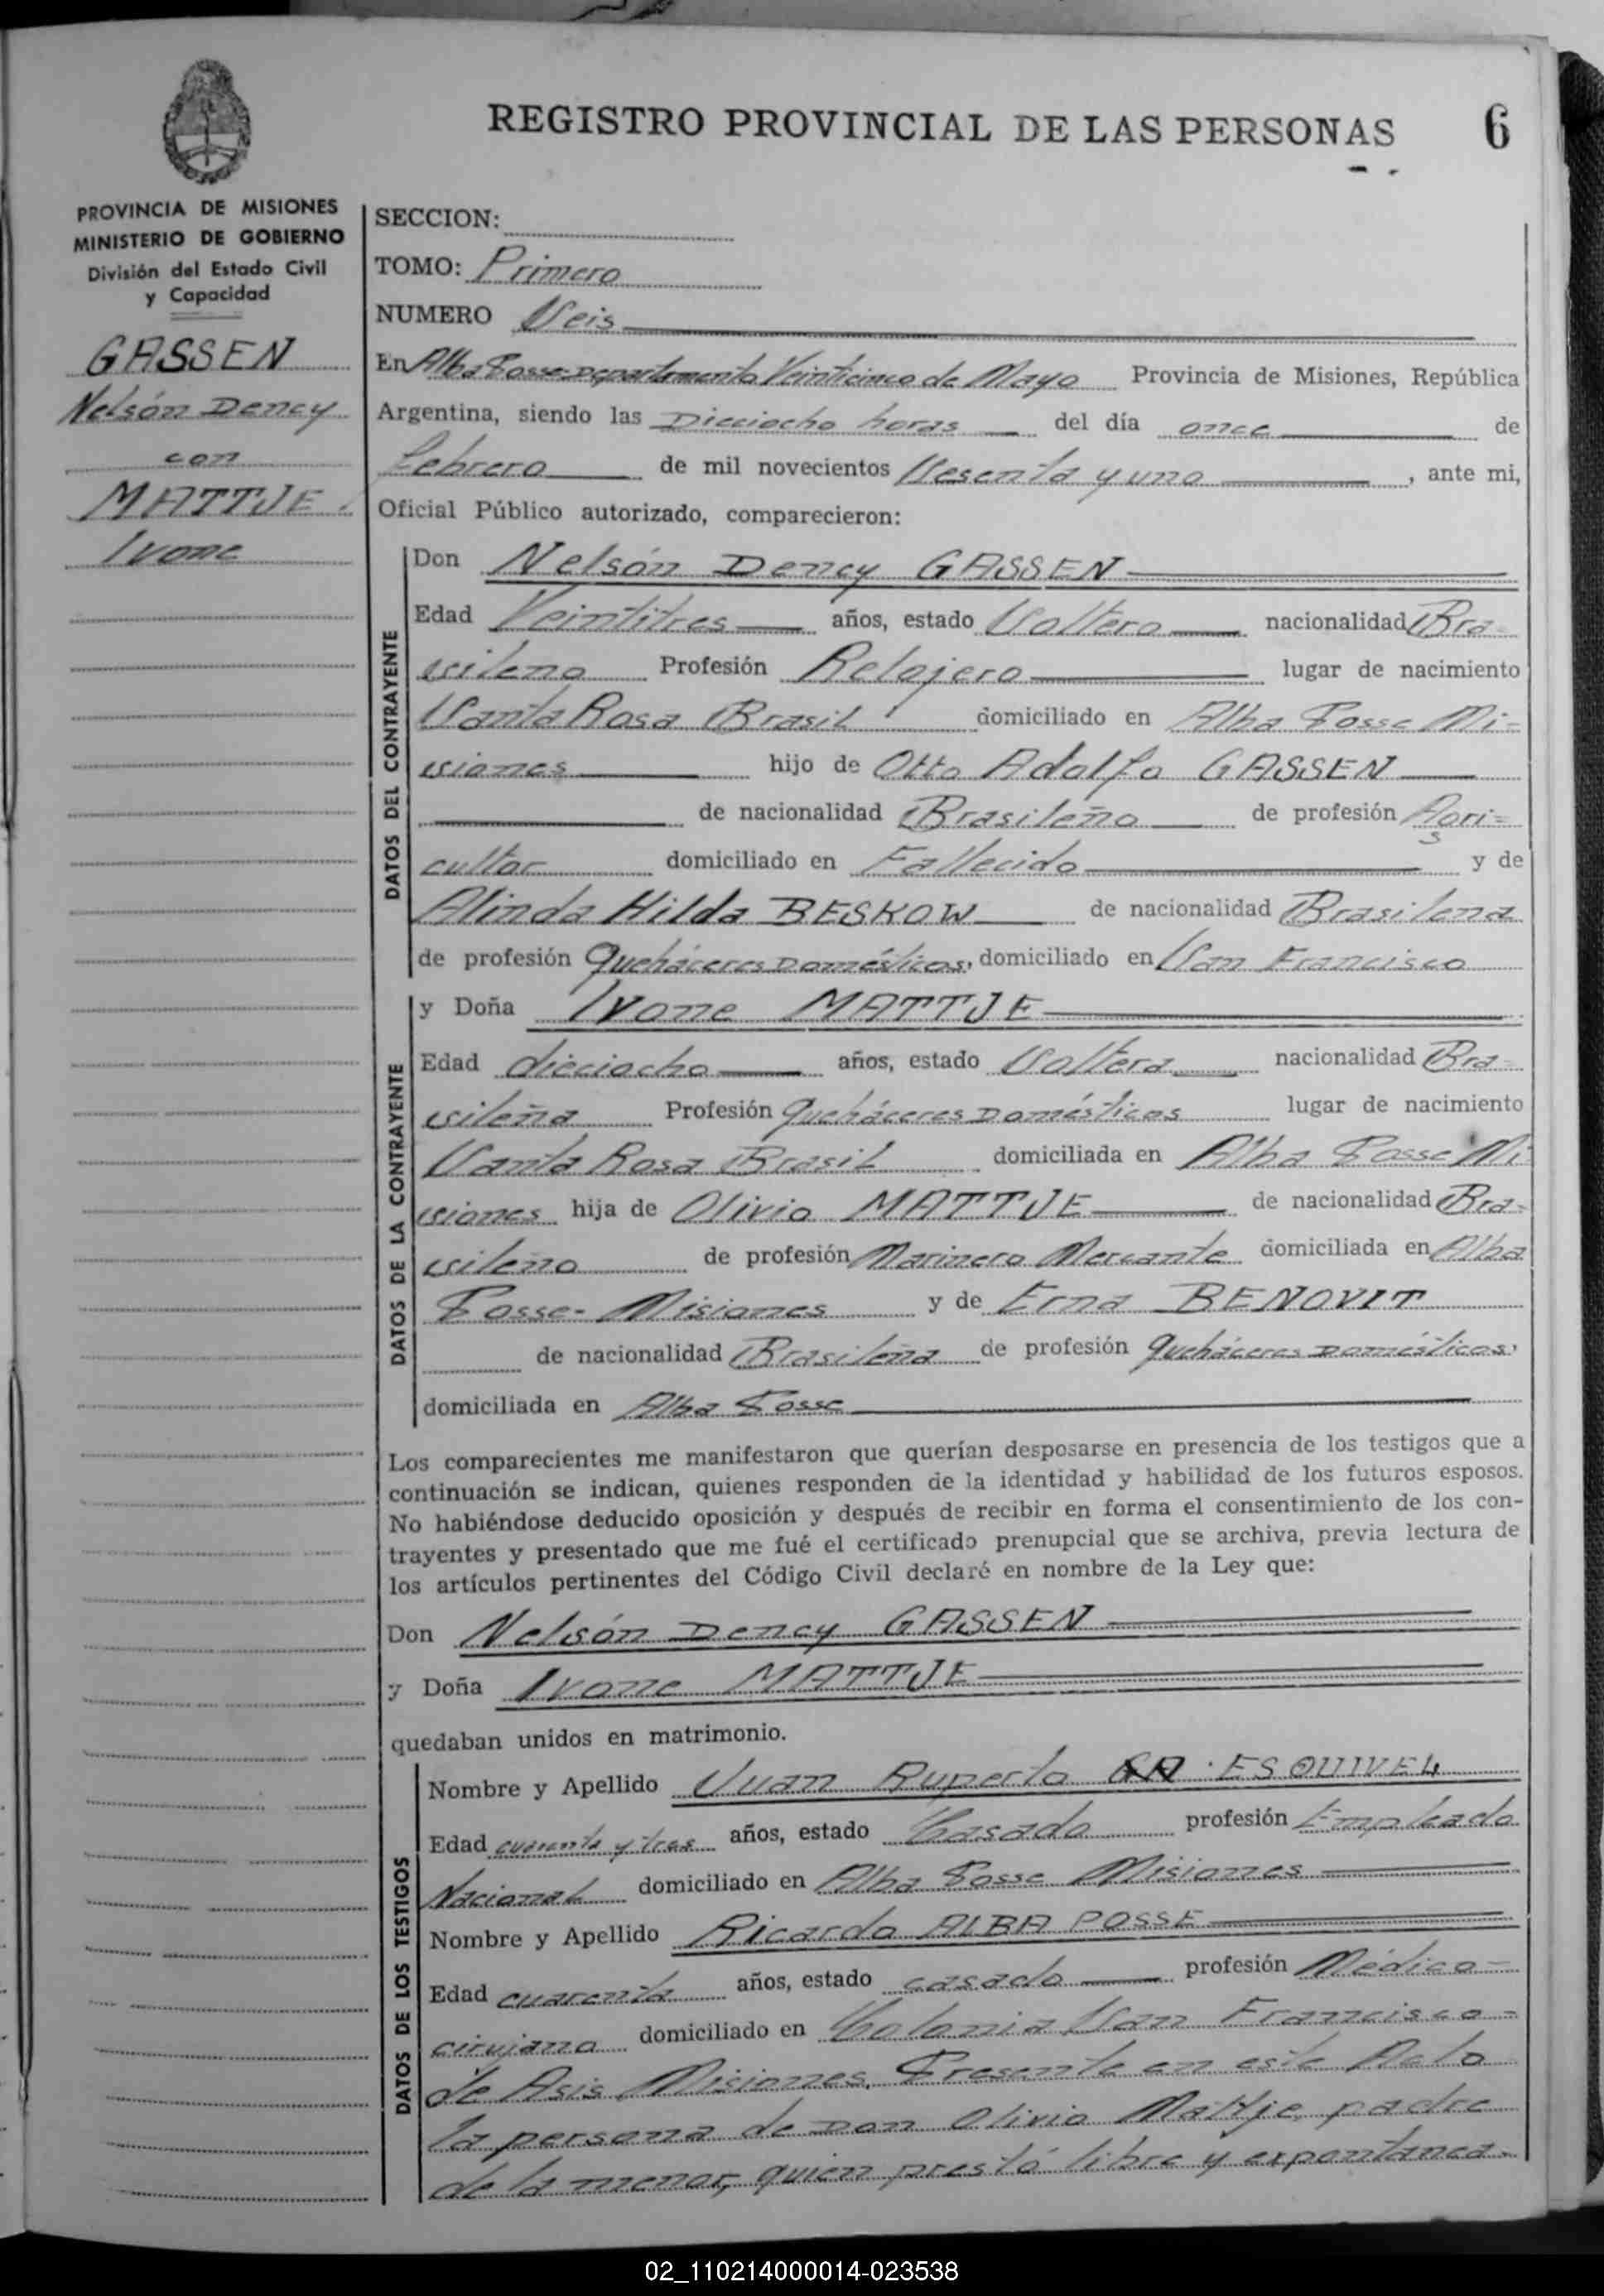 REGISTRO PROVINCIAL DE LAS PERSONAS
6
PROVINCIA DE MISIONES
MINISTERIO DE GOBIERNO
División del Estado Civil
y Capacidad
GASSEN
Nelsón Dency
con
MATTJE
Ivone
SECCION:
TOMO: Primero
NUMERO Seis
En Alba Posse-Departamento Veinticinco de Mayo Provincia de Misiones, República
Argentina, siendo las Dieciocho horas del día once de
Febrero de mil novecientos Sesenta y uno, ante mi,
Oficial Público autorizado, comparecieron:
DATOS DEL CONTRAYENTE
Don Nelsón Dency GASSEN
Edad Veintitres años, estado Soltero nacionalidad Bra-
sileno Profesión Relojero lugar de nacimiento
Santa Rosa Brasil domiciliado en Alba Posse Mi=
siones hijo de Otto Adolfo GASSEN
de nacionalidad Brasileño de profesión Agri=
cultor domiciliado en Fallecido y de
Alinda Hilda BESKOW de nacionalidad Brasilena
de profesión Queháceres Domésticos, domiciliado en San Francisco
DATOS DE LA CONTRAYENTE
y Doña Ivone MATTJE
Edad dieciocho años, estado Soltera nacionalidad Bra-
sileña Profesión Queháceres Domésticos lugar de nacimiento
Santa Rosa Brasil domiciliada en Alba Posse Mi
siones hija de Olivio MATTJE de nacionalidad Bra-
sileño de profesión Marinero Mercante domiciliada en Alba
Posse- Misiones y de Erna BENOVIT
de nacionalidad Brasileña de profesión Queháceres Domésticos,
domiciliada en Alba Posse
Los comparecientes me manifestaron que querían desposarse en presencia de los testigos que a
continuación se indican, quienes responden de la identidad y habilidad de los futuros esposos.
No habiéndose deducido oposición y después de recibir en forma el consentimiento de los con-
trayentes y presentado que me fué el certificado prenupcial que se archiva, previa lectura de
los artículos pertinentes del Código Civil declaré en nombre de la Ley que:
Don Nelsón Dency GASSEN
y Doña Ivone MATTJE
quedaban unidos en matrimonio.
DATOS DE LOS TESTIGOS
Nombre y Apellido Juan Ruperto ESQUIVEL
Edad cuarenta y tres años, estado Casado profesión Empleado
Nacional domiciliado en Alba Posse Misiones
Nombre y Apellido Ricardo ALBA POSSE
Edad cuarenta años, estado casado profesión Médico-
cirujano domiciliado en Colonia San Francisco=
de Asis Misiones. Presente en este Acto
la persona de Don Olivio Mattje, padre
de la menor, quien prestó libre y expontanea-
02_110214000014-023538